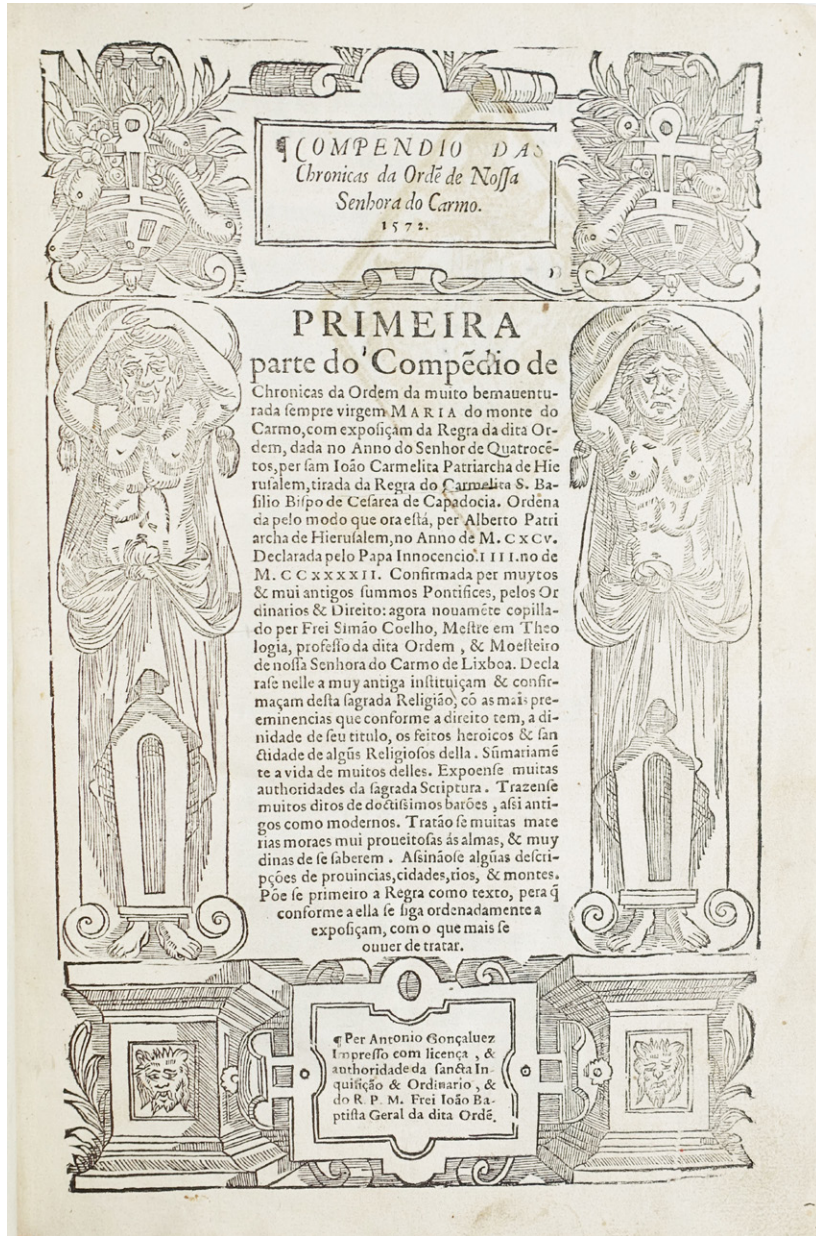 ¶COMPENDIO DAS
Chronicas da Ordẽ de Noſſa
Senhora do Carmo.
1572.
PRIMEIRA
parte do Compẽdio de
Chronicas da Ordem da muito bemauentu-
rada ſempre virgem MARIA do monte do
Carmo, com expoſiçam da Regra da dita Or-
dem, dada no Anno do Senhor de Quatrocẽ-
tos, per ſam Ioão Carmelita Patriarcha de Hie
ruſalem, tirada da Regra do Carmelita S. Ba-
ſilio Biſpo de Ceſarea de Capadocia. Ordena
da pelo modo que ora eſtá, per Alberto Patri
archa de Hieruſalem, no Anno de M. CXCV.
Declarada pelo Papa Innocencio.IIII.no de
M. CCXXXXII. Confirmada per muytos
& mui antigos ſummos Pontifices, pelos Or
dinarios & Direito: agora nouamẽte copilla-
do per Frei Simão Coelho, Meſtre em Theo
logia, profeſſo da dita Ordem, & Moeſteiro
de noſſa Senhora do Carmo de Lixboa. Decla
raſe nelle a muy antiga inſtituiçam & confir-
maçam deſta ſagrada Religião, cõ as mais pre-
eminencias que conforme a direito tem, a di-
nidade de ſeu titulo, os feitos heroicos & ſan
ctidade de algũs Religioſos della. Sũmariamẽ
te a vida de muitos delles. Expoenſe muitas
authoridades da ſagrada Scriptura. Trazenſe
muitos ditos de doctiſsimos barões, aſsi anti-
gos como modernos. Tratão ſe muitas mate
rias moraes mui proueitoſas ás almas, & muy
dinas de ſe ſaberem. Aſsinãoſe algũas deſcri-
pções de prouincias, cidades, rios, & montes.
Põe ſe primeiro a Regra como texto, pera q̃
conforme a ella ſe ſiga ordenadamente a
expoſiçam, com o que mais ſe
ouuer de tratar.
¶Per Antonio Gonçaluez
Impreſſo com licença, &
authoridade da ſancta In-
quiſição & Ordinario, &
do R. P. M. Frei Ioão Ba-
ptiſta Geral da dita Ordẽ.